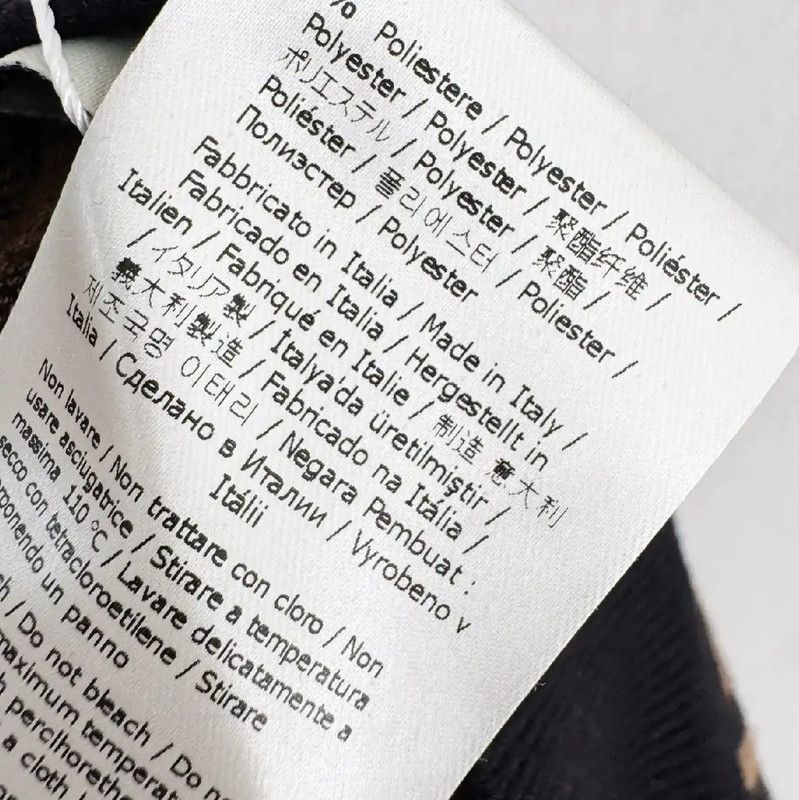 % Poliestere / Polyester / Poliéster /
Polyester / Polyester / 聚酯纤维 /
ポリエステル / Polyester / 聚酯 /
Poliéster / 폴리에스터 / Poliester /
Полиэстер / Polyester
Fabbricato in Italia / Made in Italy /
Fabricado en Italia / Hergestellt in
Italien / Fabriqué en Italie / 制造 意大利
/ イタリア製 / İtalya'da üretilmiştir /
義大利製造 / Fabricado na Itália /
제조국명 이태리 / Negara Pembuat :
Italia / Сделано в Италии / Vyrobeno v
Itálii
Non lavare / Non trattare con cloro / Non
usare asciugatrice / Stirare a temperatura
massima 110 °C / Lavare delicatamente a
secco con tetracloroetilene / Stirare
rponendo un panno
/ Do not bleach / Do no
maximum temperat
perclhorethe
a cloth